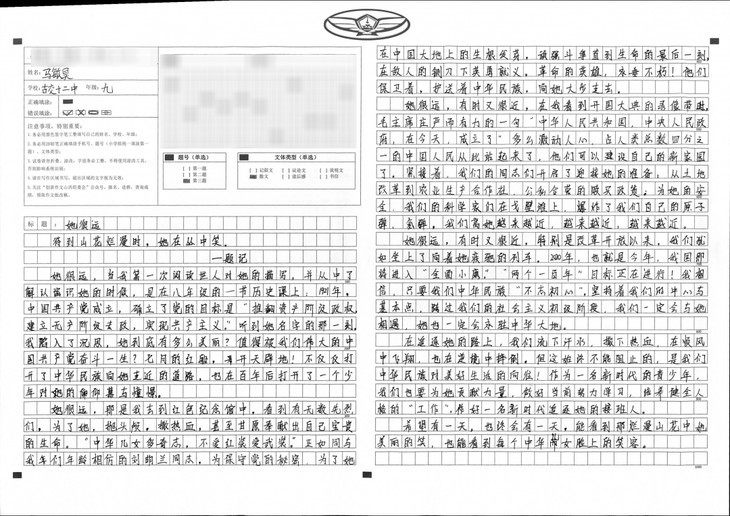 姓名:
学校: 古交十二中 年级: 九
正确填涂:
错误填涂:
注意事项，特别重要:
题号（单选）
第一题
第二题
第三题
文体类型（单选）
记叙文
议论文
说明文
散文
读后感
书信
标 题: 她很远
待到山花烂漫时，她在丛中笑。
—题记
她很远，当我第一次阅读世人对她的描写，并从中了
解认识她的时候，是在八年级的一节历史课上，1921年，
中国共产党成立，确立了党的目标是“推翻资产阶级政权，
建立无产阶级专政，实现共产主义。”听到她名字的那一刻，
我陷入了沉思，她到底有多么美好？值得被我们伟大的中
国共产党奋斗一生？七月的红船，开天辟地！不仅仅打
开了中华民族向她走近的道路，也在百年后打开了一个少
年对她的仰慕与憧憬。
她很远，那是我去到红色纪念馆中，看到有无数先烈
们，为了她，抛头颅，撒热血，甚至甘愿奉献出自己宝贵
的生命。“中华儿女多奇志，不爱红装爱武装。”正如同与
我年们年龄相仿的刘胡兰同志，为保守党的秘密，为了她
在中国大地上的生根发芽，顽强斗争直到生命的最后一刻，
在敌人的铡刀下英勇就义。革命的英雄，永垂不朽！他们
保卫着，护送着中华民族，向她大步走去。
她很远，有时又很近，在我看到开国大典的录像带时，
毛主席庄严而有力的一句“中华人民共和国，中央人民政
府，在今天，成立了”多么激动人心，占人类总数四分之
一的中国人民从此站起来了，他们可以建设自己的新家园
了。紧接着，我们的同志们开启了迎接她的准备，从土地
改革到农业生产合作社，公私合营的赎买政策。为她的安
全，我们的科学家们在戈壁滩上，爆炸了我们自己的原子
弹，氢弹。我们离她越来越近，越来越近，越来越近。
她很远，有时又很近，特别是改革开放以来，我们犹
如坐上了向着她疾驰的列车。2020年，也就是今年，我国即
将进入“全面小康”，“两个一百年”目标正在进行！我相
信，只要我们中华民族“不忘初心”，坚持着我们的中心与
基本点，踏过我们的社会主义初级阶段，我们一定会与她
相遇，她也一定会永驻中华大地。
在追逐她的路上，我们流下汗水，撒下热血，在顺风
中飞翔，也在逆境中摔倒。但这始终不能阻止的，是我们
中华民族对美好生活的向往！作为一名新时代的青少年，
我们也要为她贡献力量，做好当前努力学习，培养健全人
格的“工作”，做好一名新时代追逐她的接班人。
希望有一天，也终会有一天，能看到那烂漫山花中她
美丽的笑，也能看到每个中华儿女脸上的笑容。